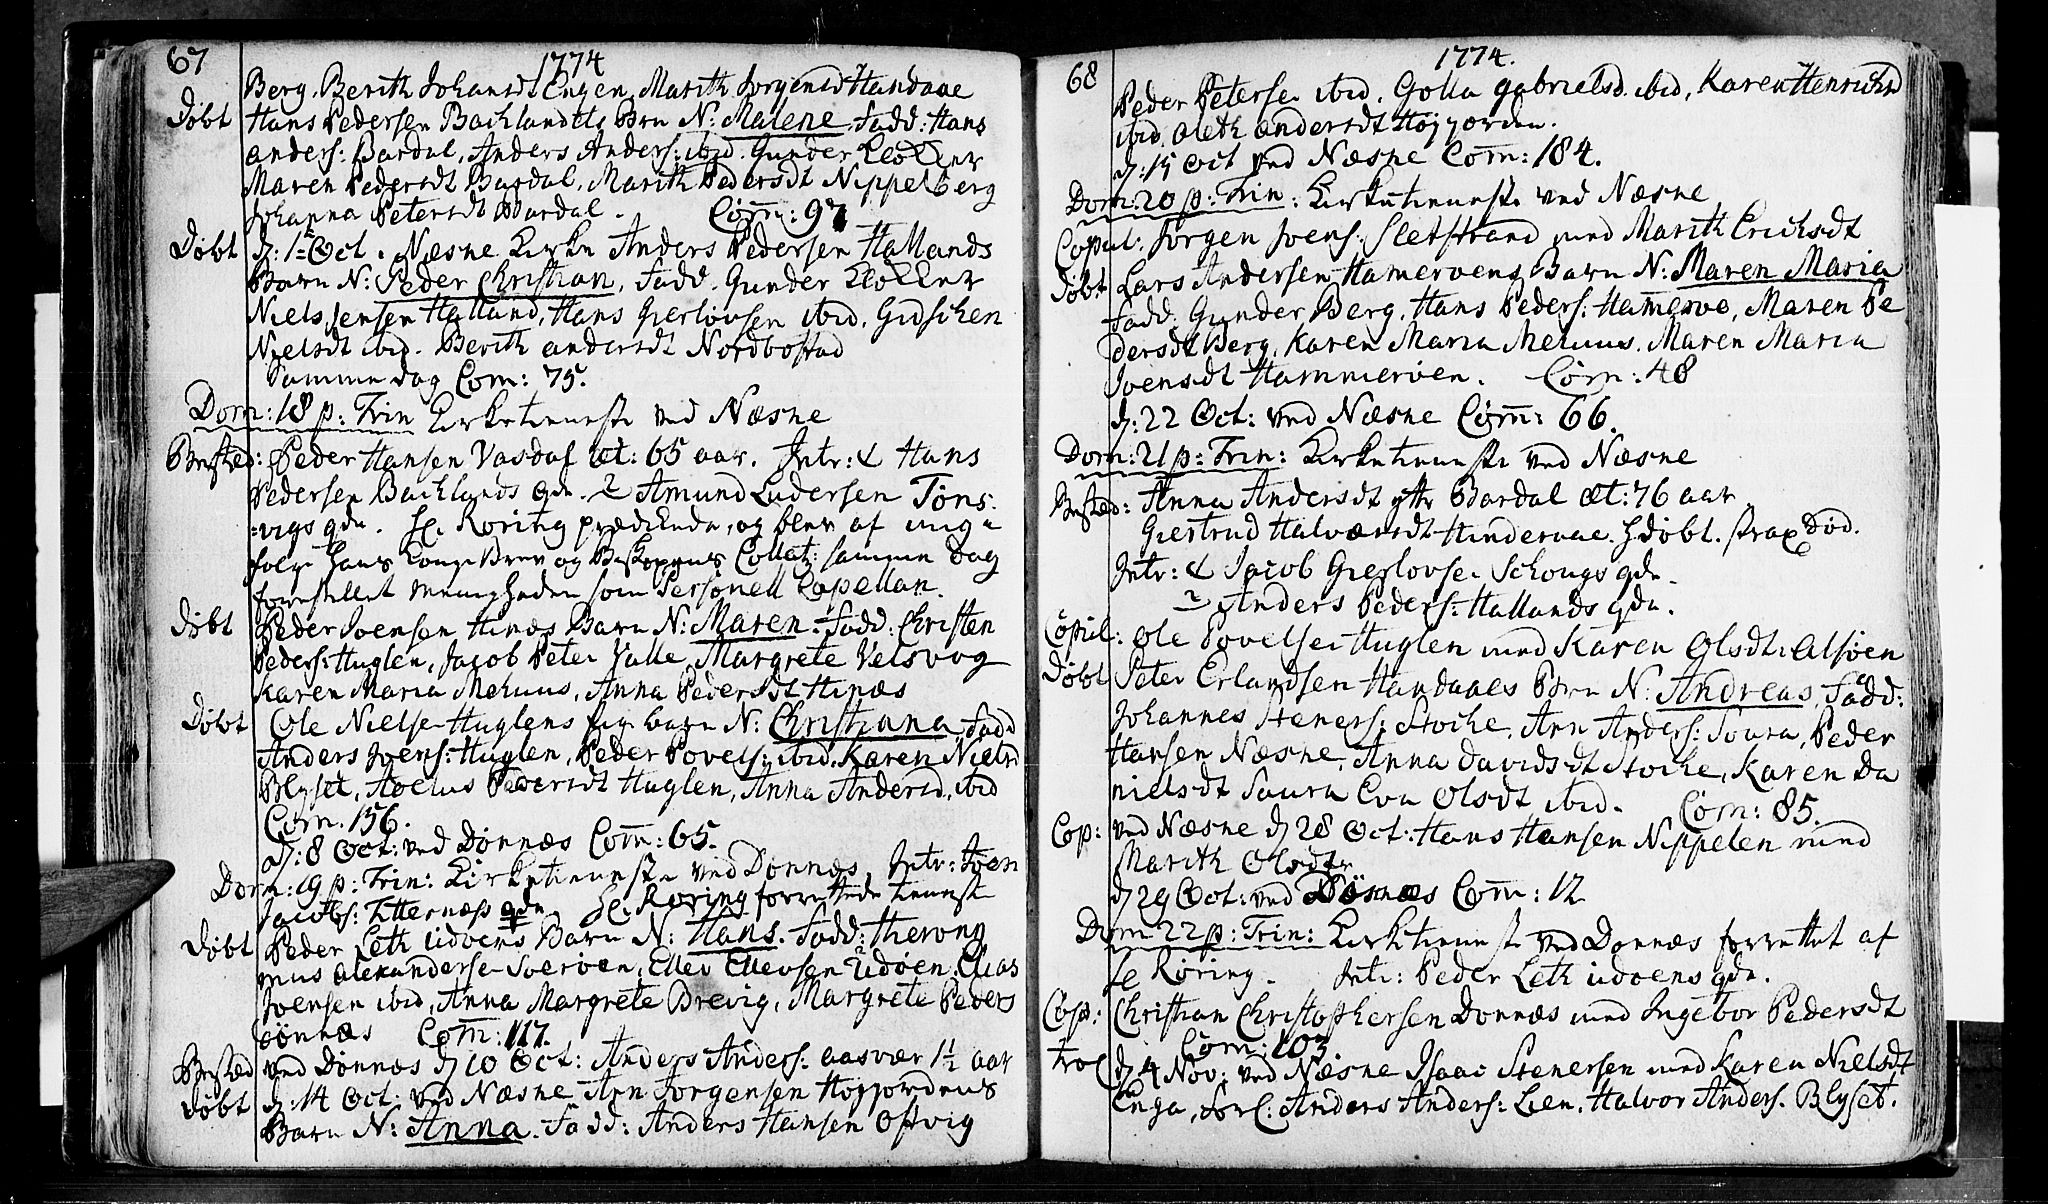 67
1774
Berg. Berith Johansdt Engen, Marith Jørgensd Handaae
Døbt Hans Pedersen Bachlandets Barn N: Malene. Fadd: Hans
Anders: Bardal, Anders Anders: ibid. Gunder Klokker
Maren Pedersdt Bardal, Marith Pedersdt Nippelberg
Johanna Petersdt Bardal. Com: 97
Døbt d: 1te Oct. Næsne Kirke Anders Pedersen Hallands
Barn N: Peder Christian, Fadd. Gunder Klokker
Niels Jensen Halland, Hans Gierløvsen ibid. Gidschen
Nielsdt ibid. Berith Andersdt Nordbostad
Samme dag Com: 75.
Dom: 18 p: Trin Kirketieneste ved Næsne
Begrafved: Peder Hansen Vasdal æt: 65 aar. Intr: 1 Hans
Pedersen Bachlands qde. 2 Amund Ludersen Töns:
=vigs qde. Hr. Röring prædikede, og blev af mig i
følge Hans Konge Brev og Biskopens Collatz samme Dag
forestillet Menigheden som Personell Capellan.
Døbt Peder Joensen Hinæs Barn N: Maren. Fadd: Christen
Peders: Huglen, Jacob Peter Valle, Margrete Velsvog
Karen Maria Mehuus, Anna Pedersdt Hinæs
Døbt Ole Nielse Huglens barn N: Christiana Fadd
Anders Joens: Huglen, Peder Povels: ibid. Karen Nielsd
Blyset, Pedersdt Huglen, Anna Andersd. ibid
Com. 156.
d: 8 Oct: ved Dønnæs Com: 65.
Dom: 19 p: Trin: Kirketieneste ved Dønnæs, Intr: Joen
Jacobs: Titternæss qde Hr. Roring forrettede tieneste
Døbt Peder Leth Udøens Barn N: Hans. Fadd: Hierony
mus Alexanderse Soerøen, Ellev Ellevsen Udøen, Elias
Joensen ibid, Anna Margrete Brevig, Margrete Peders
Dønnæs Com: 117.
ved Dønnæs d 10 Oct: Anders Anders: Aasvær 1½ aar
Døbt d: 14 Oct: ved Næsne Arn Jørgensen Højjordens
Barn N: Anna. Fadd: Anders Hansen Ostvig
68
1774.
Peder Peterse ibid. Golla Gabrielsd. ibid, Karen Henrichsd
ibid. Aleth Andersdt Højjorden.
d: 15 Oct ved Næsne Com: 184.
Dom: 20 p: Trin: Kirketieneste ved Næsne
Copul: Jørgen Joens: Sletstrand med Marith Erichsdt
Døbt Lars Andersen Hamerøens Barn N: Maren Maria
Fadd. Gunder Berg, Hans Peders: Hamerøe, Maren Pe
dersdt Berg, Karen Maria Mehuus. Maren Maria
Joensdt Hammerøen. Com: 48
d: 22 Oct: ved Næsne Com: 66.
Dom: 21 p: Trin: Kirketieneste ved Næsne
Anna Andersdt Bardal æt: 76 aar
Giertrud Halvorsdt Hindervae. Hdøbt. strax død.
Intr: 1 Jacob Gierlovse Schougs qde.
2 Anders Peders: Hallands qde.
Copul: Ole Povelse Huglen med Karen Olsdt: Alsøen
Døbt Peter Erlandsen Handaaes Barn N: Andreas, Fadd:
Johannes Steners: Stocke, Arn Anders: Soura, Peder
Hansen Næsne, Anna Davidsdt Stocke, Karen Da
nielsdt Soura Eva Olsdt ibid. Com: 85.
Cop: ved Næsne d 28 Oct: Hans Hansen Nippelen med
Marith Olsdtr
d 29 Oct: ved Dønnæs Com: 12
Dom 22 p: Trin: Kirketieneste ved Dønnæs forrettet af
Hr Röring. Intr: Peder Leth Udøens qde.
Cop: Christian Christophersen Donnæs med Ingebor Pedersdt
Com: 103
Trol d 4 Nov: ved Næsne Isaac Stenersen med Karen Nielsdt
Enga, Forl: Anders Anders: Leen, Halvor Anders. Blyset.